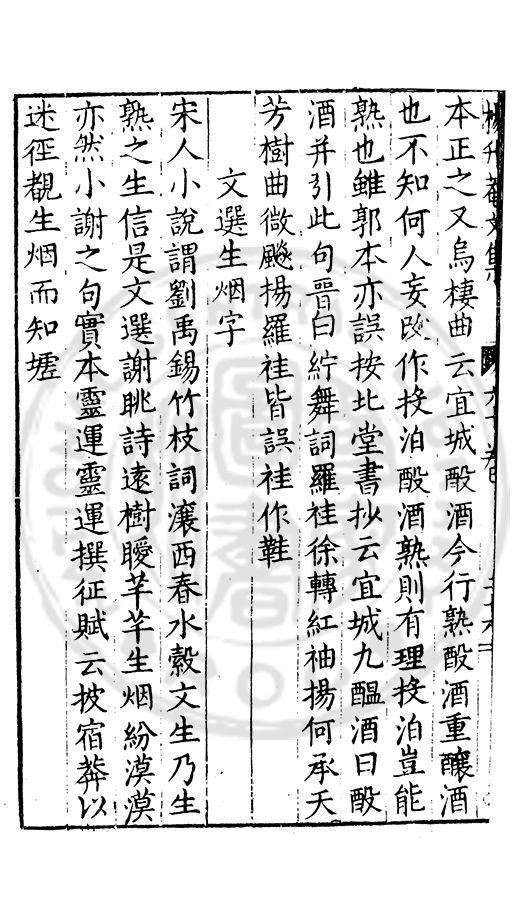 本正之又烏棲曲云宜城酘酒今行熟酘酒重釀酒
也不知何人妄改作投泊酘酒熟則有理投泊豈能
熟也雖郭本亦誤按北堂書抄云宜城九醞酒曰酘
酒并引此句晉白紵舞詞羅袿徐轉紅袖揚何承天
芳樹曲微飈揚羅袿皆誤袿作鞋
文選生烟字
宋人小說謂劉禹錫竹枝詞瀼西春水縠文生乃生
熟之生信是文選謝眺詩遠樹曖芊芊生烟紛漠漠
亦然小謝之句實本靈運靈運撰征賦云披宿莽以
迷徑覩生烟而知墟